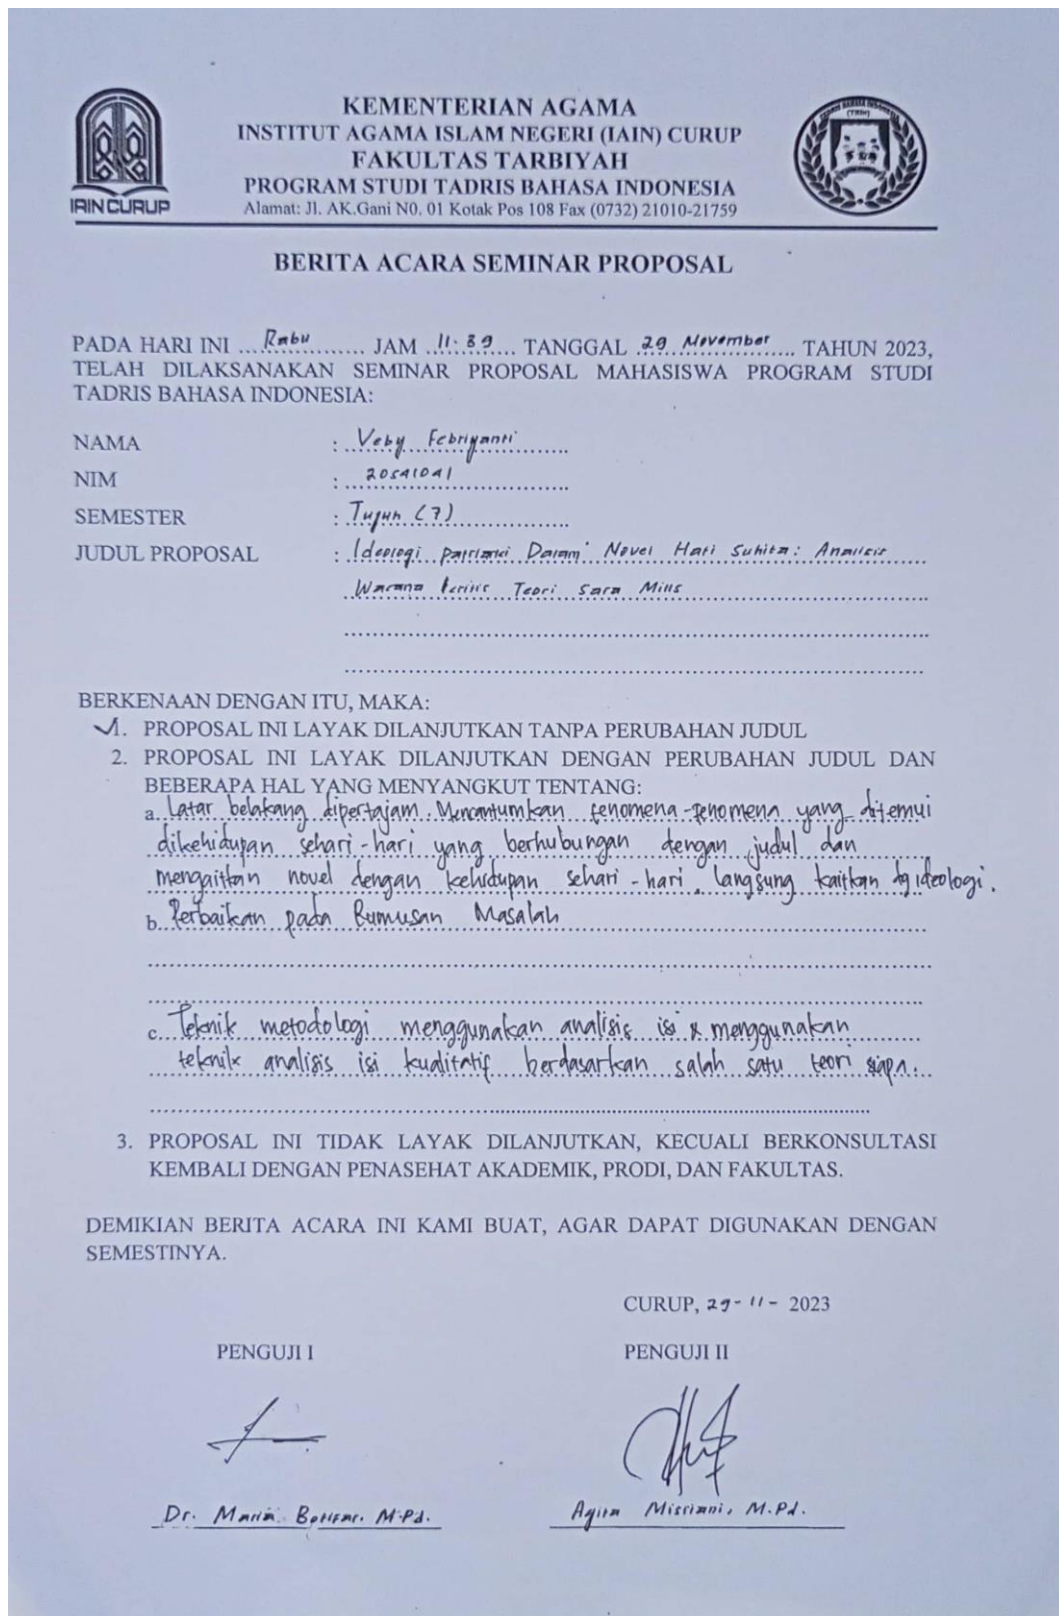 KEMENTERIAN AGAMA
INSTITUT AGAMA ISLAM NEGERI (IAIN) CURUP
FAKULTAS TARBIYAH
PROGRAM STUDI TADRIS BAHASA INDONESIA
Alamat: Jl. AK.Gani N0. 01 Kotak Pos 108 Fax (0732) 21010-21759
IAIN CURUP
BERITA ACARA SEMINAR PROPOSAL
PADA HARI INI Rabu JAM 11:39 TANGGAL 29 November TAHUN 2023,
TELAH DILAKSANAKAN SEMINAR PROPOSAL MAHASISWA PROGRAM STUDI
TADRIS BAHASA INDONESIA:
NAMA : Veby Febriyanti
NIM : 20541041
SEMESTER : Tujuh (7)
JUDUL PROPOSAL : Ideologi Patriarki Dalam Novel Hati Suhita: Analisis
Wacana Kritis Teori Sara Mills
BERKENAAN DENGAN ITU, MAKA:
✓1. PROPOSAL INI LAYAK DILANJUTKAN TANPA PERUBAHAN JUDUL
2. PROPOSAL INI LAYAK DILANJUTKAN DENGAN PERUBAHAN JUDUL DAN
BEBERAPA HAL YANG MENYANGKUT TENTANG:
a. Latar belakang dipertajam. Mencantumkan fenomena-fenomena yang ditemui
dikehidupan sehari-hari yang berhubungan dengan judul dan
mengaitkan novel dengan kehidupan sehari-hari, langsung kaitkan dg ideologi.
b. Perbaikan pada Rumusan Masalah
c. Teknik metodologi menggunakan analisis isi & menggunakan
teknik analisis isi kualitatif berdasarkan salah satu teori siapa.
3. PROPOSAL INI TIDAK LAYAK DILANJUTKAN, KECUALI BERKONSULTASI
KEMBALI DENGAN PENASEHAT AKADEMIK, PRODI, DAN FAKULTAS.
DEMIKIAN BERITA ACARA INI KAMI BUAT, AGAR DAPAT DIGUNAKAN DENGAN
SEMESTINYA.
CURUP, 29-11- 2023
PENGUJI I PENGUJI II
Dr. Maria Botifar, M.Pd. Agita Misriani, M.Pd.